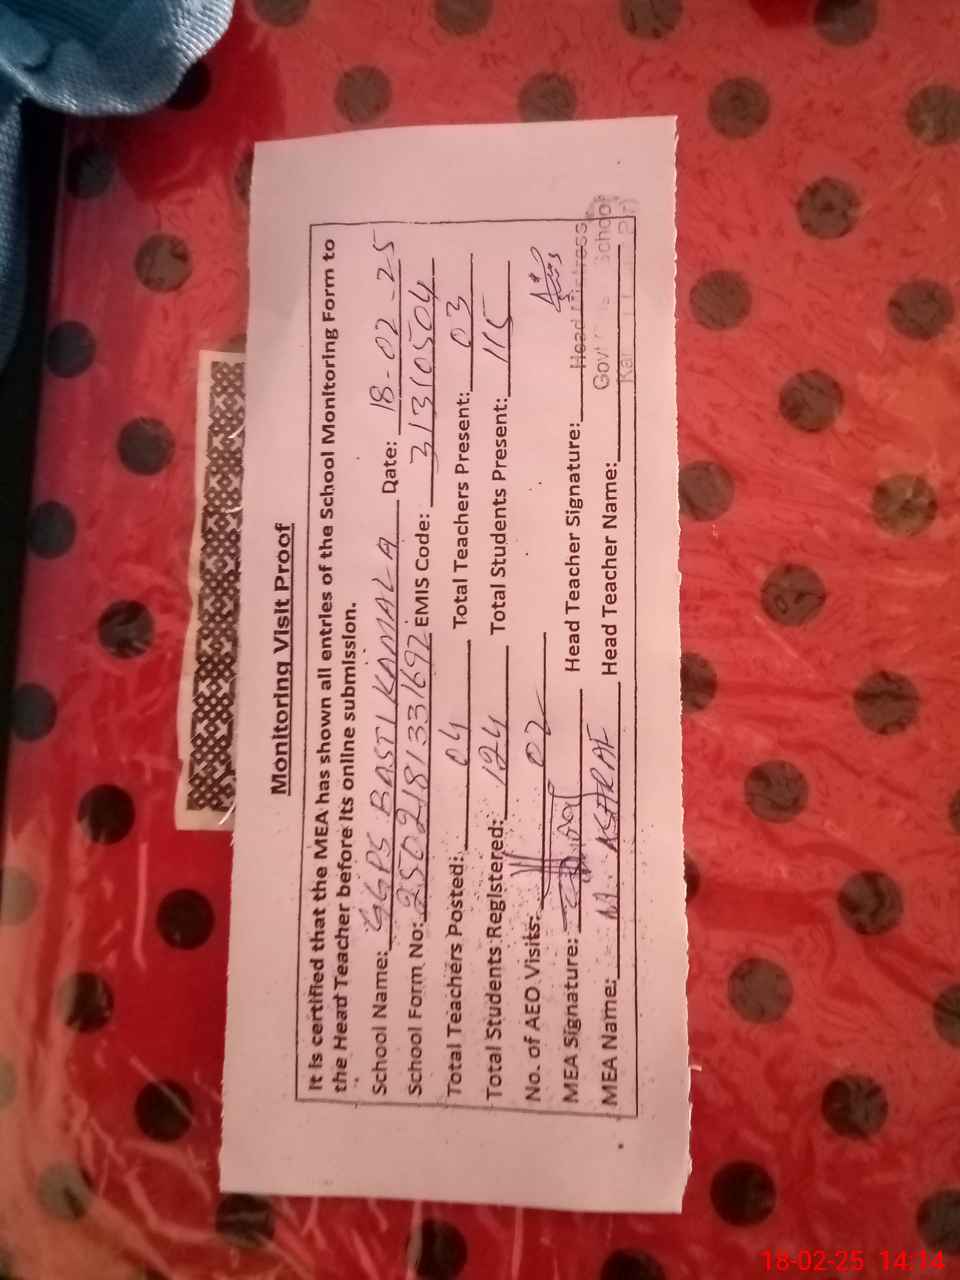 Monitoring Visit Proof
It is certified that the MEA has shown all entries of the School Monitoring Form to
the Head Teacher before its online submission.
School Name: GGPS BASTI KAMALA Date: 18-02-25
School Form No: 2502181331692 EMIS Code: 31310504
Total Teachers Posted: 04 Total Teachers Present: 03
Total Students Registered: 124 Total Students Present: 115
No. of AEO Visits: 02
MEA Signature: Head Teacher Signature:
Head Mistress
MEA Name: M. ASHRAF Head Teacher Name:
School
18-02-25 14:14